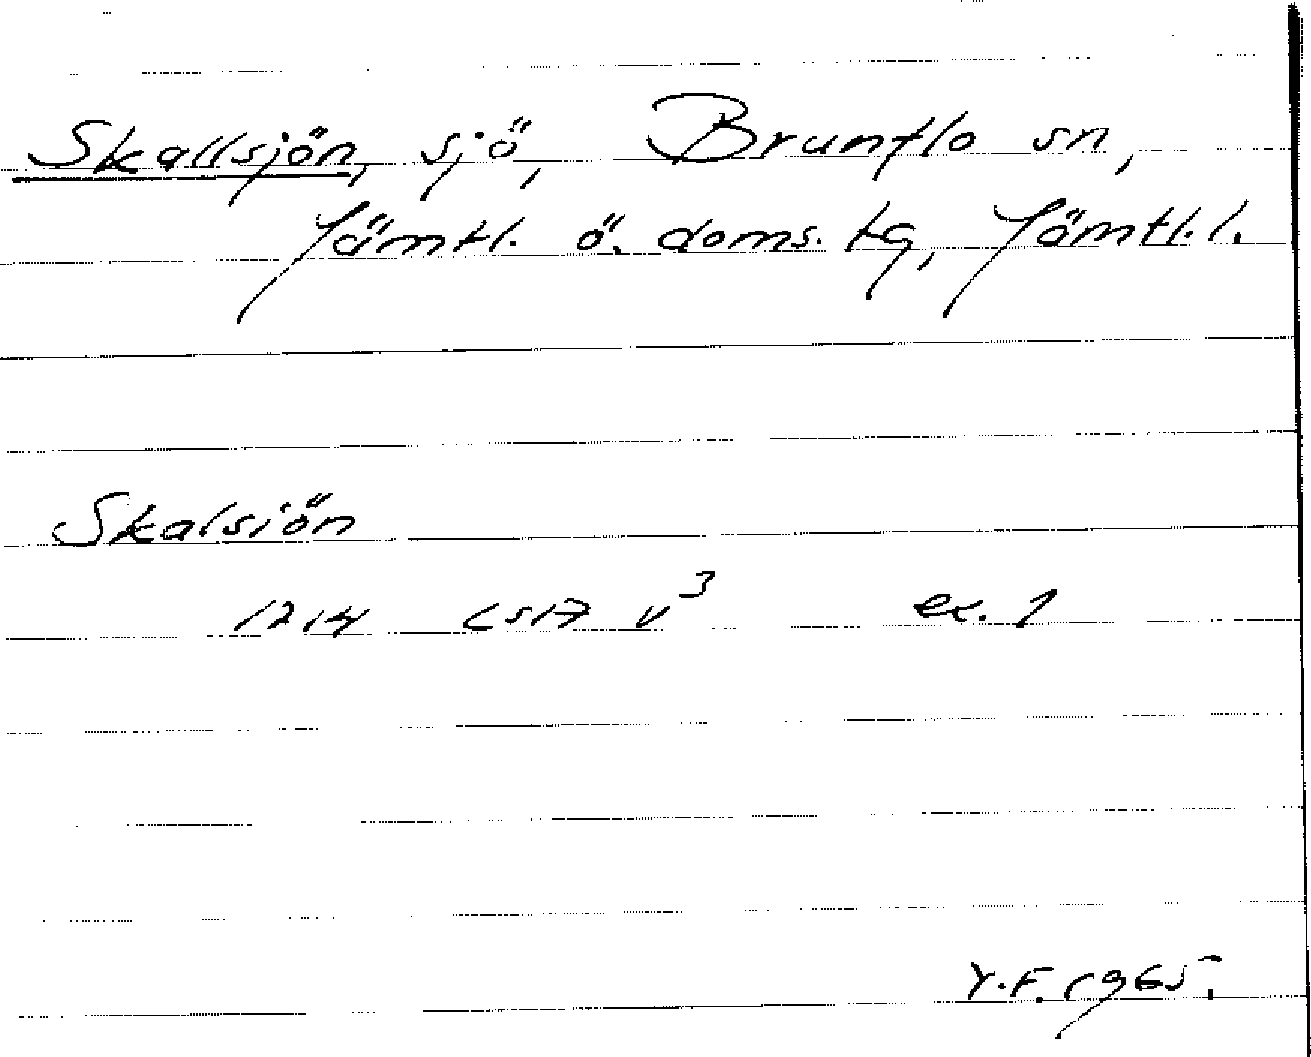 Skallsjön, sjö, Brunflo sn,
Jämtl. ö. doms. tg, Jämtl. l.
Skalsiön
1214 (s17 v³ ex. 1
Y.F. 1965.